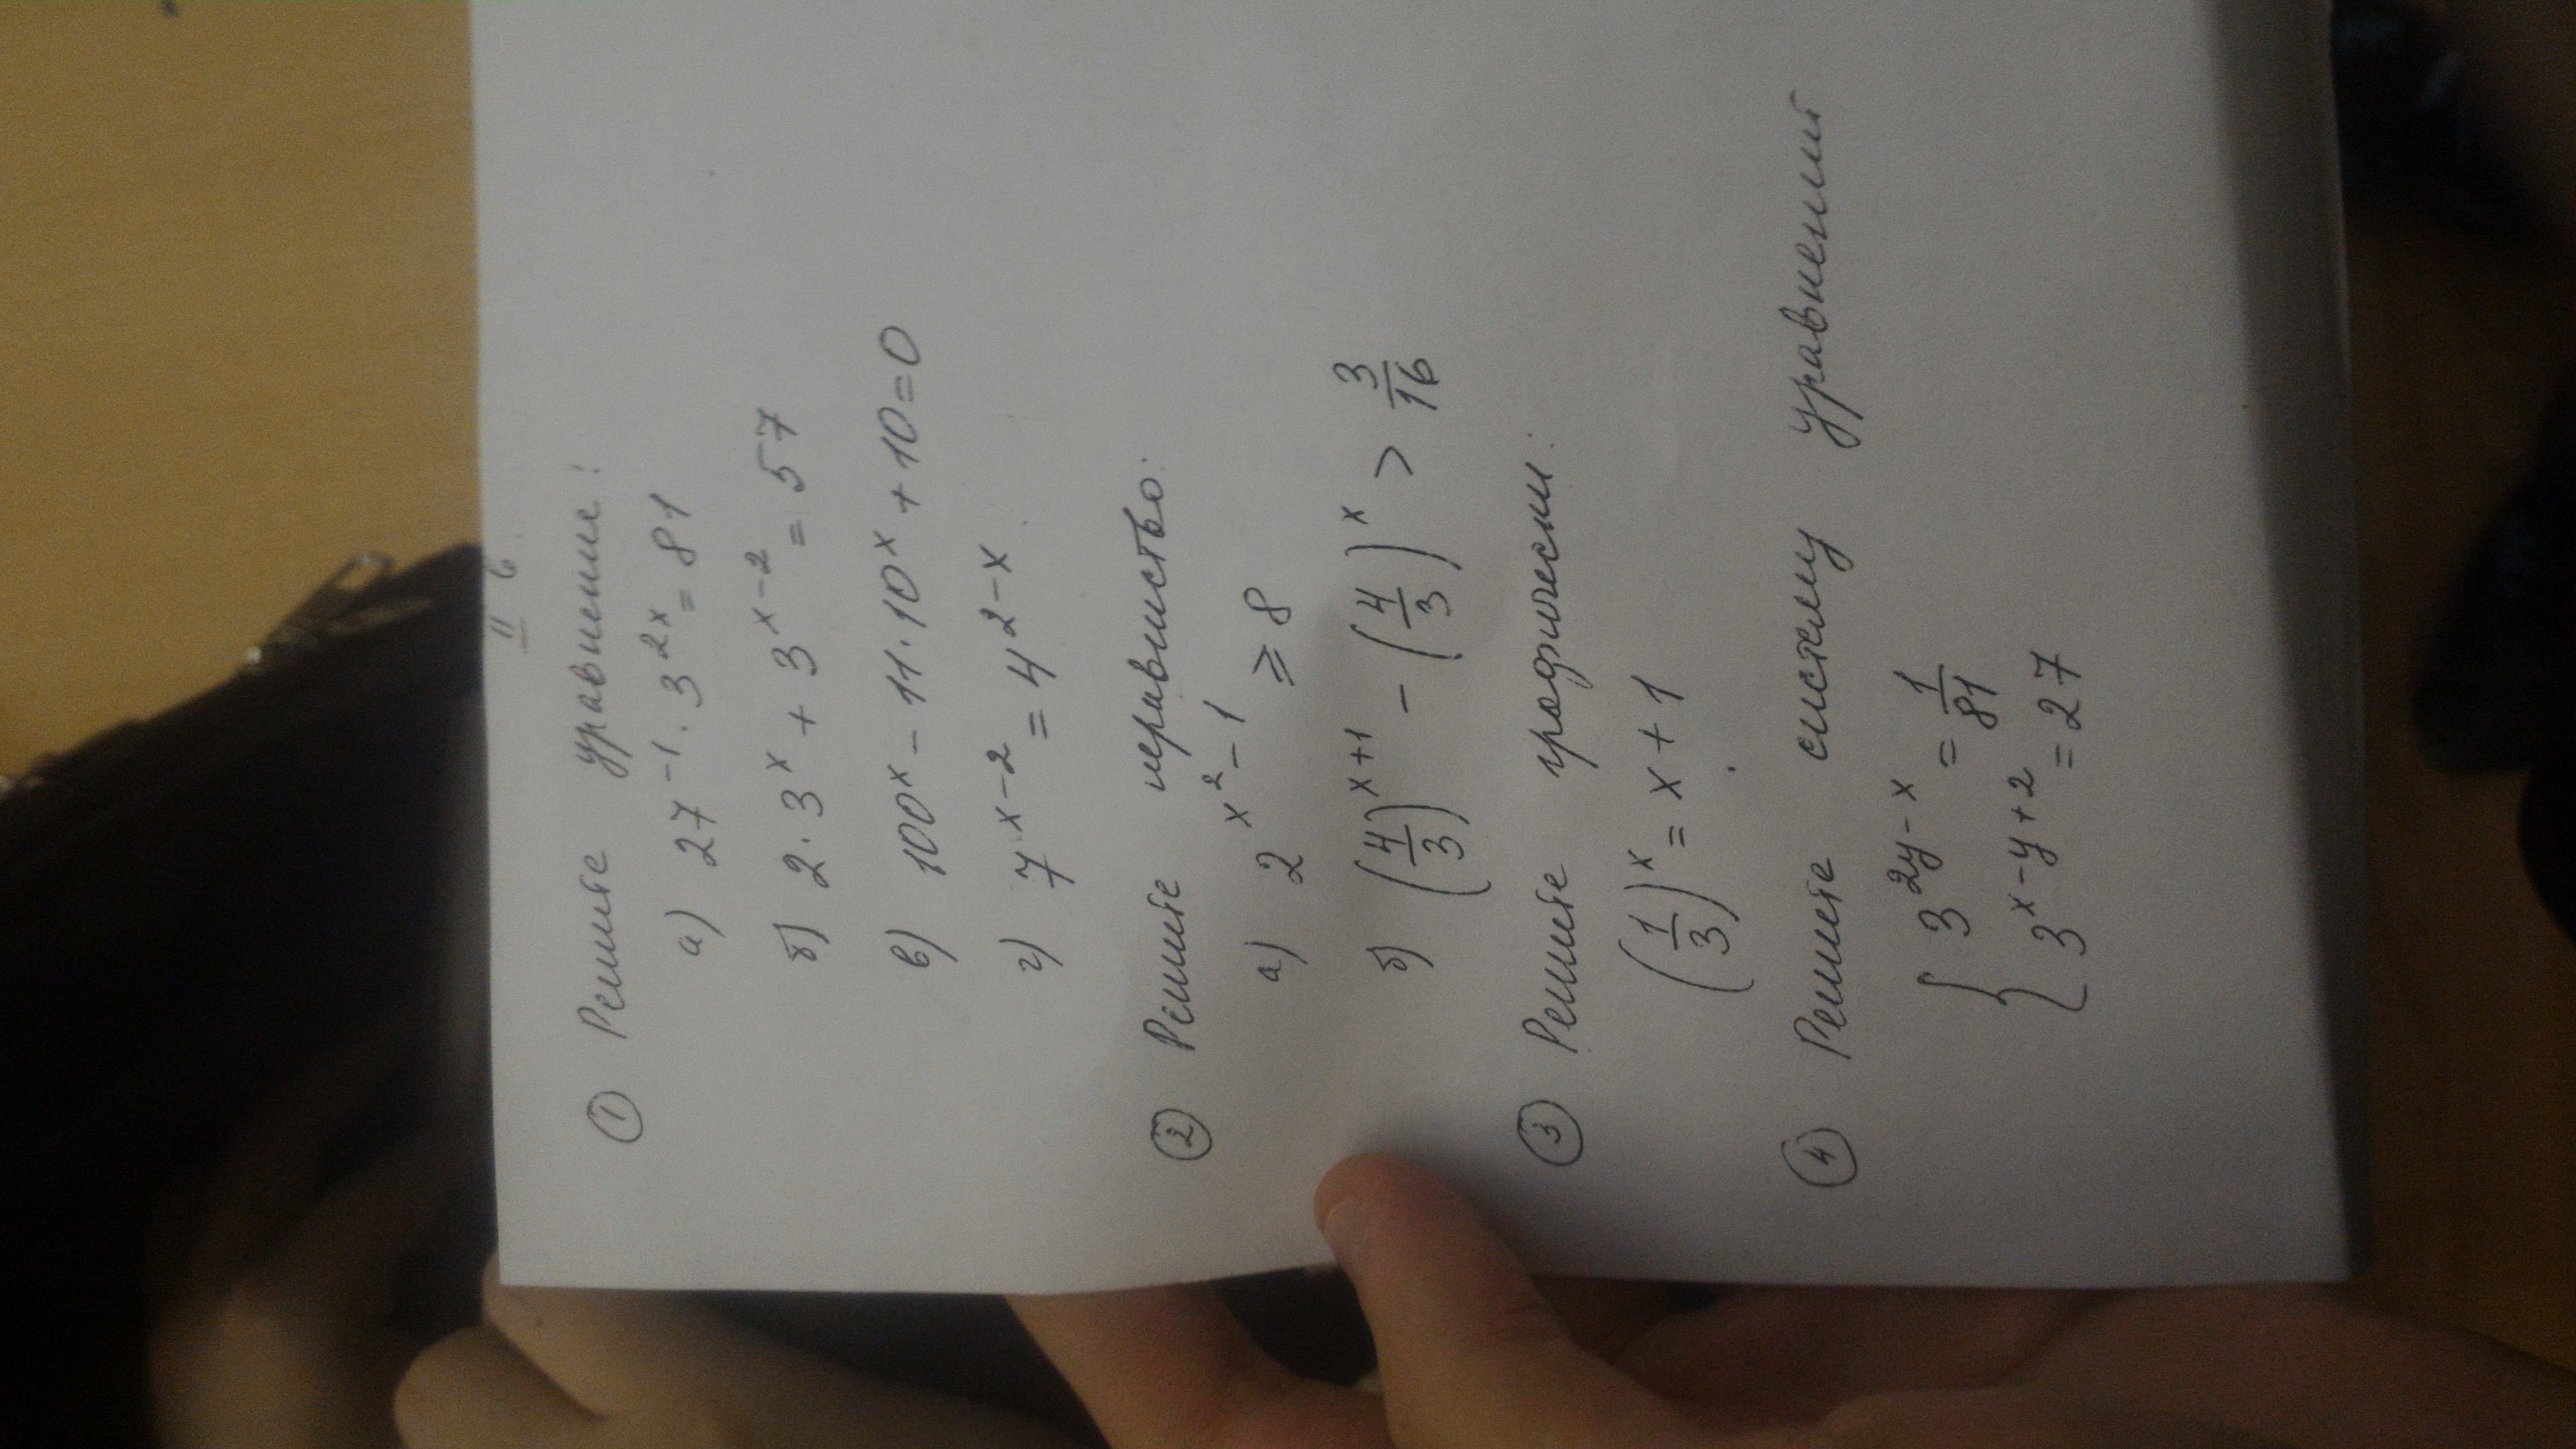 II в.
① Решите уравнение:
а) 27⁻¹ · 3²ˣ = 81
б) 2 · 3ˣ + 3ˣ⁻² = 57
в) 100ˣ − 11 · 10ˣ + 10 = 0
г) 7ˣ⁻² = 4²⁻ˣ
② Решите неравенство:
а) 2^(x²−1) ≥ 8
б) (4/3)ˣ⁺¹ − (4/3)ˣ > 3/16
③ Решите графически:
(1/3)ˣ = x + 1
④ Решите систему уравнений
{ 3^(2y−x) = 1/81
{ 3^(x−y+2) = 27